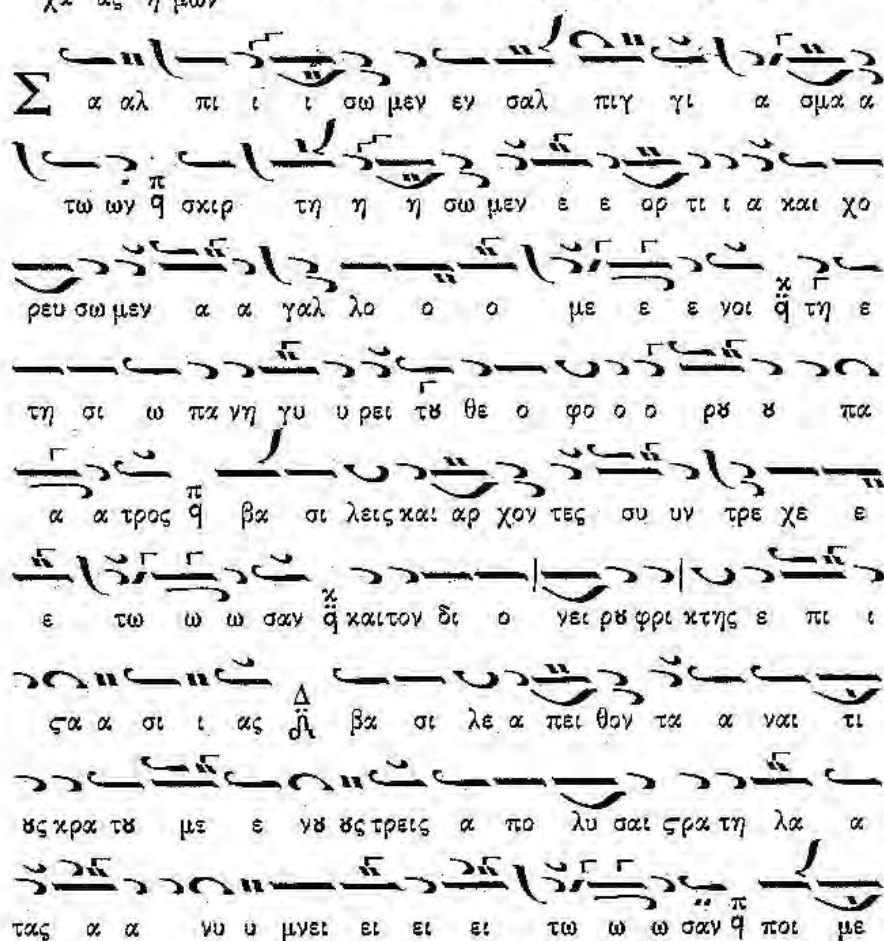 χα ας η μων
Σ α αλ πι ι ι σω μεν εν σαλ πιγ γι α σμα α
τω ων π q σκιρ τη η η σω μεν ε ε ορ τι ι α και χο
ρευ σω μεν α α γαλ λο ο ο με ε ε νοι κ q τη ε
τη σι ω πα νη γυ υ ρει τȣ θε ο φο ο ο ρȣ ȣ πα
α α τρος π q βα σι λεις και αρ χον τες συ υν τρε χε ε
ε τω ω ω σαν κ q και τον δι ο νει ρȣ φρι κτης ε πι ι
ϛα α σι ι ας Δ βα σι λε α πει θον τα α ναι τι
ȣς κρα τȣ με ε νȣ ȣς τρεις α πο λυ σαι ϛρα τη λα α
τας α α νυ υ μνει ει ει ει τω ω ω σαν π q ποι με